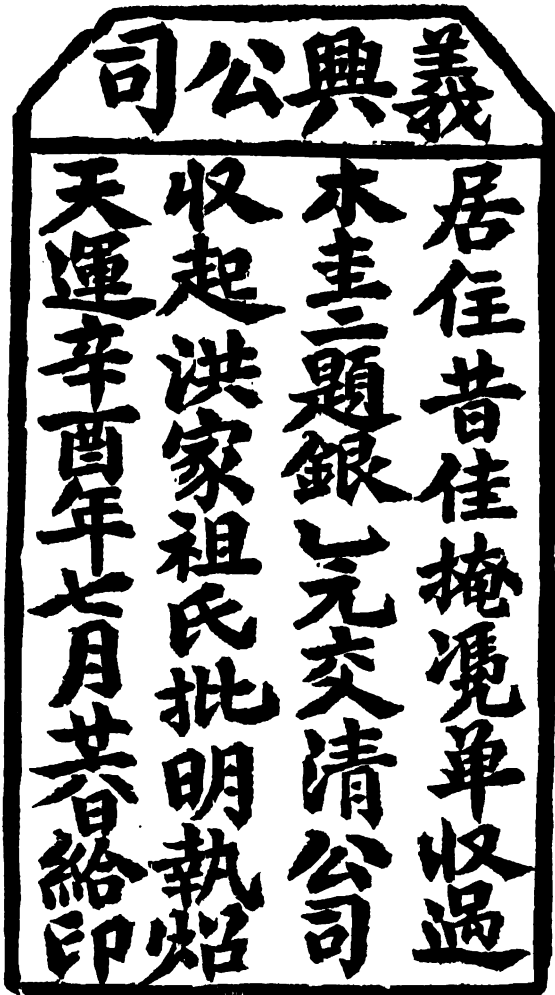 義興公司
居住昔佳掩凴单收過
木圭二題銀乚元交清公司
收起洪家祖氏批明執炤
天運辛酉年七月廿六日給印